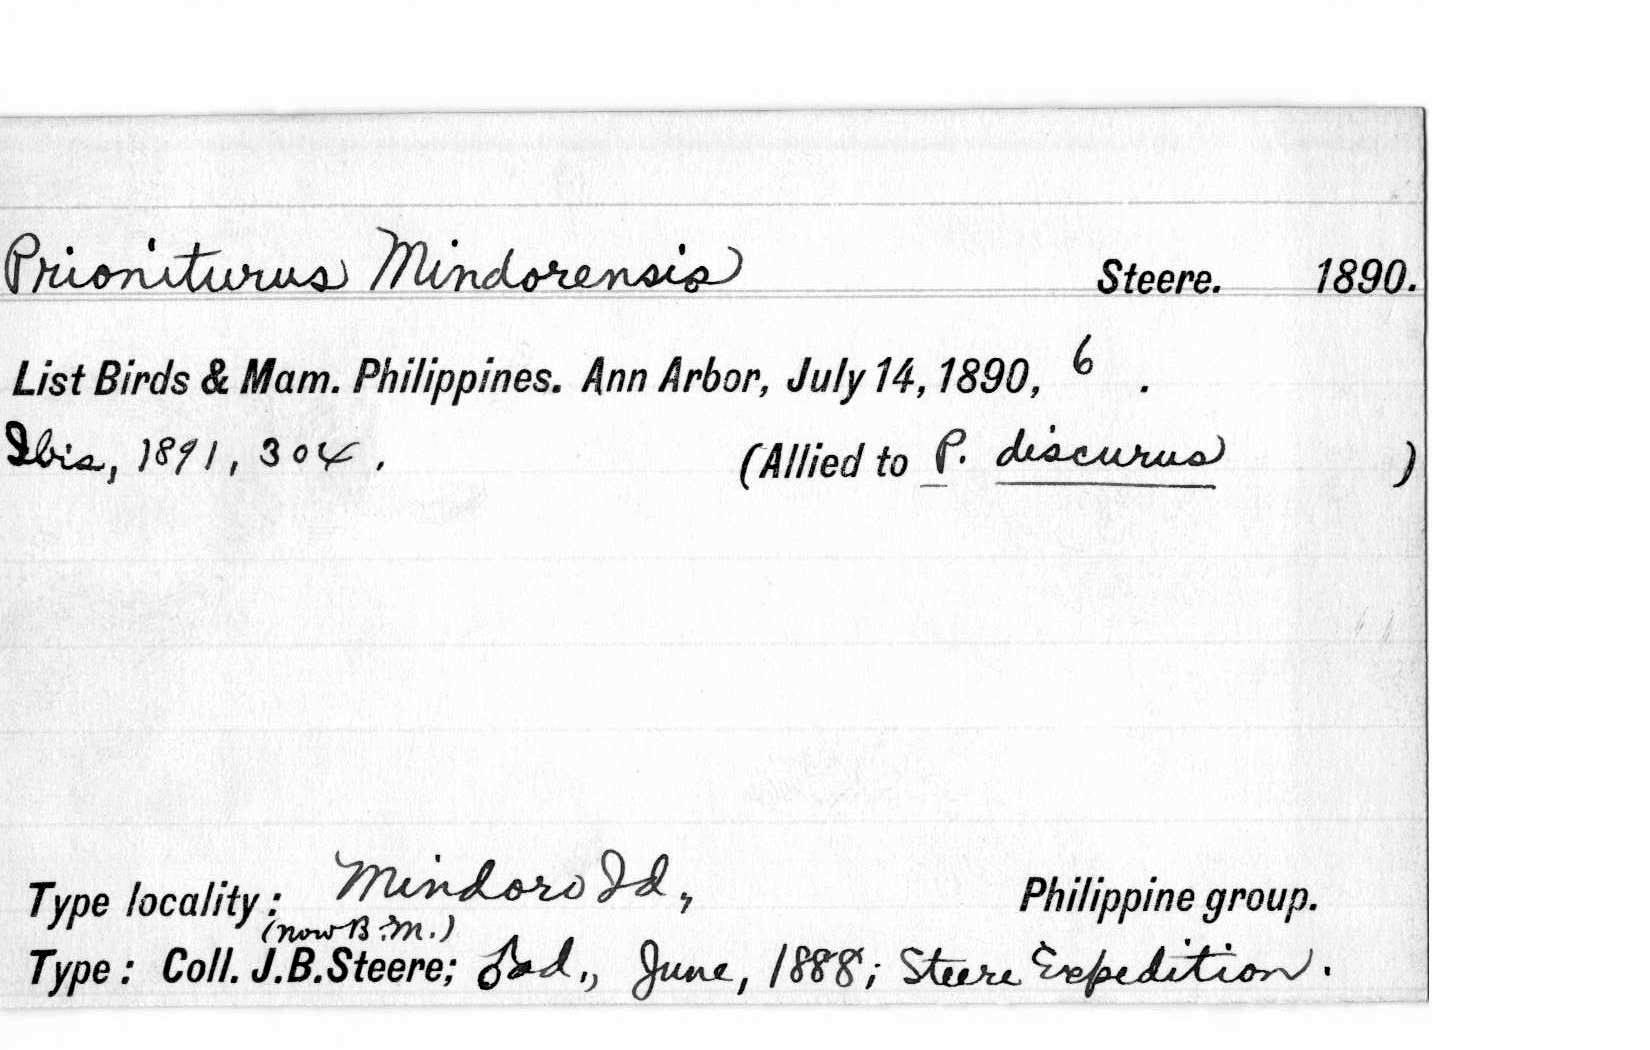 Prioniturus Mindorensis Steere. 1890.
List Birds & Mam. Philippines. Ann Arbor, July 14, 1890, 6 .
Ibis, 1891, 304. (Allied to P. discurus )
Type locality: Mindoro Id, Philippine group.
(now B.M.)
Type: Coll. J.B.Steere; ♂ad., June, 1888; Steere Expedition.